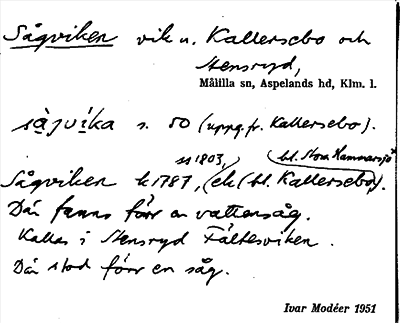 Sågviken vik u. Kallersebo och
Stensryd,
Målilla sn, Aspelands hd, Klm. l.
såjvika s. 50 (uppg. fr. Kallersebo).
ss 1803, bl. Stora Hammarsjö
Sågviken k 1787, ek (bl. Kallersebo).
Där fanns förr en vattensåg.
Kallas i Stensryd Fältesviken.
Där stod förr en såg.
Ivar Modéer 1951